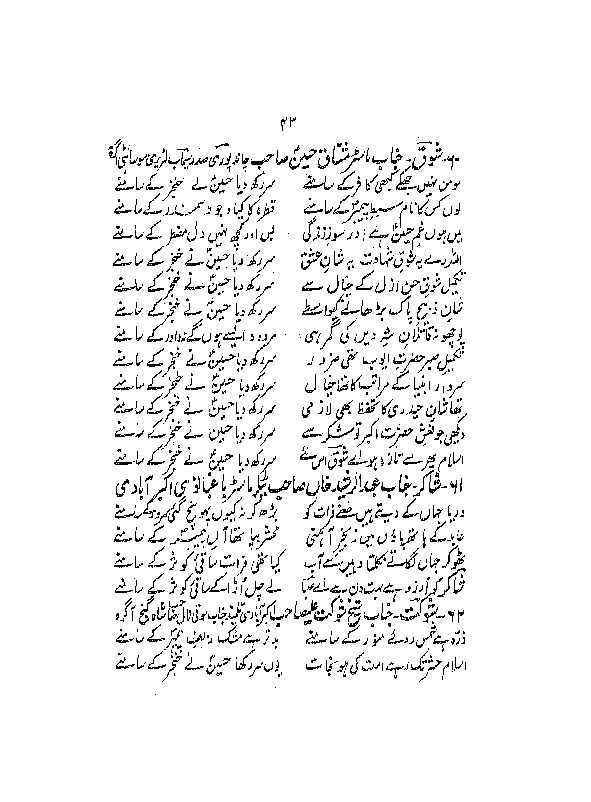 ۴۳
۶۰۔ شوق۔ جناب ماسٹر مشتاق حسین صاحب چاندپوری صدر سیماب لٹریری سوسائٹی آگرہ
مومن نہیں جھکے کبھی کافر کے سامنے سر رکھ دیا حسینؑ نے خنجر کے سامنے
لوں کس کا نام سبط پیمبرؐ کے سامنے قطرہ کا کیا وجود سمندر کے سامنے
میں ہوں غم حسینؑ ہے اور سوز زندگی بس اور کچھ نہیں دل مضطر کے سامنے
اللہ رے یہ شوق شہادت یہ شان عشق سر رکھ دیا حسینؑ نے خنجر کے سامنے
تکمیل شوق حسن ازل کے خیال سے سر رکھ دیا حسینؑ نے خنجر کے سامنے
شان ذبیح پاک بڑھانے کیواسطے سر رکھ دیا حسینؑ نے خنجر کے سامنے
پوچھو نہ قاتلان شہ دیں کی گمرہی مردود ایسے ہوں گے نہ داور کے سامنے
تکمیل صبر حضرت ایوب تھی ضرور سر رکھ دیا حسینؑ نے خنجر کے سامنے
سردار انبیا کے مراتب کا تھا خیال سر رکھ دیا حسینؑ نے خنجر کے سامنے
تھا شان حیدری کا تحفظ بھی لازمی سر رکھ دیا حسینؑ نے خنجر کے سامنے
دیکھی جو نعش حضرت اکبر تو شکر سے سر رکھ دیا حسینؑ نے خنجر کے سامنے
اسلام پھر سے تازہ ہو اے شوق اس لئے سر رکھ دیا حسینؑ نے خنجر کے سامنے
۶۱۔ شاکر۔ جناب عبدالرشید خاں صاحب اکبرآبادی
دریا جہاں کے دیتے ہیں فرات کو بڑھ کر نہ کیوں ہو کے سامنے
عابد کے ہاتھ پاؤں میں زنجیر آہنی محشر بپا تھا آل پیمبرؐ کے سامنے
ٹھوکر جہاں لگائے نکلتا وہیں سے آب کیا تھی فرات ساقی کوثر کے سامنے
شاکر کو آرزو ہے بہت دن سے اے صبا لے چل اڑا کے ساقی کوثر کے سامنے
۶۲۔ شوکت۔ جناب شیخ شوکت علیصاحب اکبرآبادی تلمیذ جناب شاہ گنج آگرہ
ذرہ ہے شمس روئے منور کے سامنے بدتر ہے مشک زلف پیمبرؐ کے سامنے
اسلام حشر تک رہے امت کی ہو نجات یوں سر رکھا حسینؑ نے خنجر کے سامنے